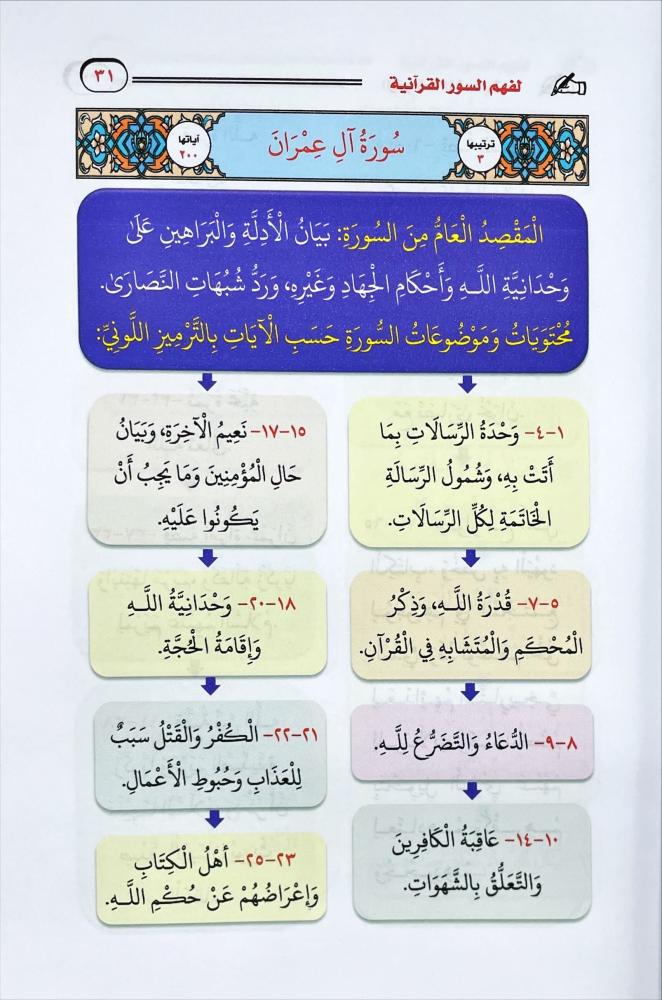 لفهم السور القرآنية
٣١
ترتيبها
٣
سُورَةُ آلِ عِمْرَانَ
آياتها
٢٠٠
الْمَقْصِدُ الْعَامُّ مِنَ السُورَةِ: بَيَانُ الْأَدِلَّةِ وَالْبَرَاهِينِ عَلَىٰ
وَحْدَانِيَّةِ اللَّـهِ وَأَحْكَامِ الْجِهَادِ وَغَيْرِهِ، وَرَدُّ شُبُهَاتِ النَّصَارَىٰ.
مُحْتَوَيَاتُ وَمَوْضُوعَاتُ السُّورَةِ حَسَبَ الْآيَاتِ بِالتَّرْمِيزِ اللَّوْنِيِّ:
١-٤- وَحْدَةُ الرِّسَالَاتِ بِمَا
أَتَتْ بِهِ، وَشُمُولُ الرِّسَالَةِ
الْخَاتَمَةِ لِكُلِّ الرِّسَالَاتِ.
٥-٧- قُدْرَةُ اللَّـهِ، وَذِكْرُ
الْمُحْكَمِ وَالْمُتَشَابِهِ فِي الْقُرْآنِ.
٨-٩- الدُّعَاءُ وَالتَّضَرُّعُ لِلَّـهِ.
١٠-١٤- عَاقِبَةُ الْكَافِرِينَ
وَالتَّعَلُّقُ بِالشَّهَوَاتِ.
١٥-١٧- نَعِيمُ الْآخِرَةِ، وَبَيَانُ
حَالِ الْمُؤْمِنِينَ وَمَا يَجِبُ أَنْ
يَكُونُوا عَلَيْهِ.
١٨-٢٠- وَحْدَانِيَّةُ اللَّـهِ
وَإِقَامَةُ الْحُجَّةِ.
٢١-٢٢- الْكُفْرُ وَالْقَتْلُ سَبَبٌ
لِلْعَذَابِ وَحُبُوطِ الْأَعْمَالِ.
٢٣-٢٥- أَهْلُ الْكِتَابِ
وَإِعْرَاضُهُمْ عَنْ حُكْمِ اللَّـهِ.